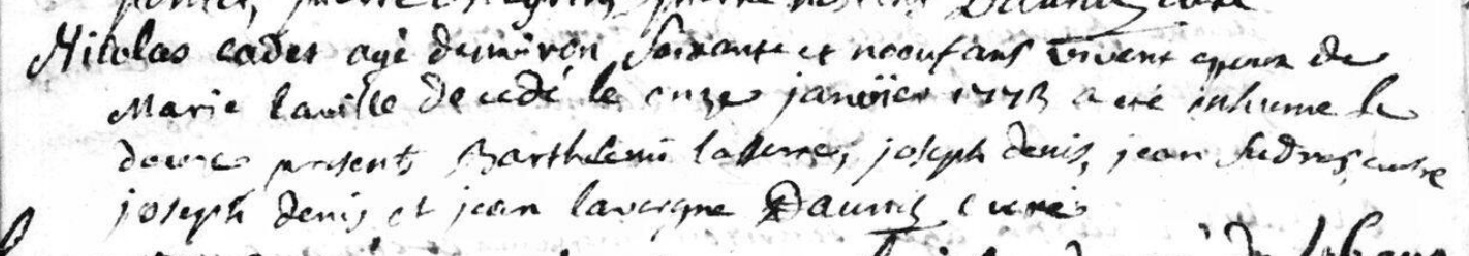 Nicolas cadet agé denviron Soixante et noeuf ans vivent epoux de
Marie laville decedé le onze janvier 1773 a eté inhumé le
douze presents Barthelemi laserre, joseph denis, jean sudres, autre
joseph denis et jean lavergne Daunis curé